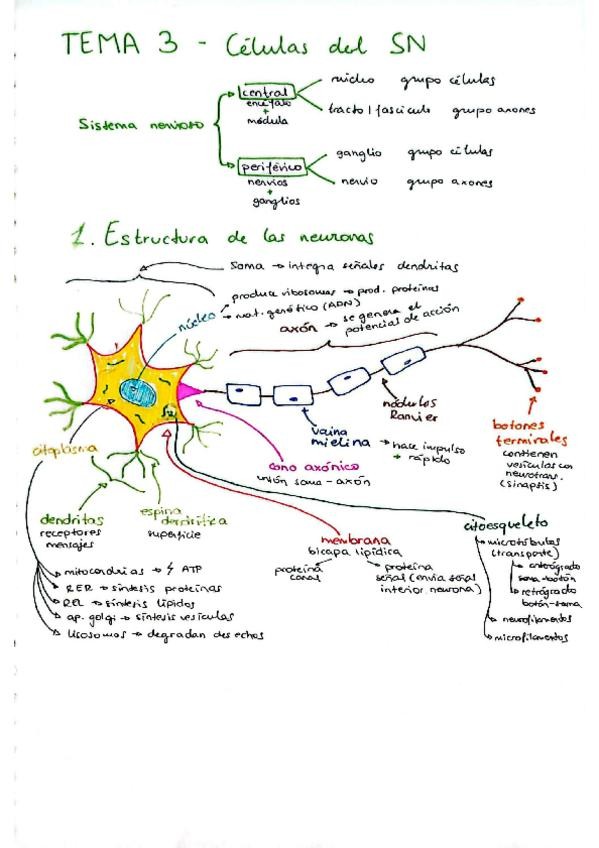 TEMA 3 - Células del SN
Sistema nervioso
central
encéfalo
+
médula
núcleo grupo células
tracto / fascículo grupo axones
periférico
nervios
+
ganglios
ganglio grupo células
nervio grupo axones
1. Estructura de las neuronas
Soma → integra señales dendritas
núcleo
produce ribosomas → prod. proteínas
→ mat. genético (ADN)
axón → se genera el
potencial de acción
nódulos
Ranvier
vaina
mielina → hace impulso
+ rápido
botones
terminales
contienen
vesículas con
neurotrans.
(sinapsis)
cono axónico
unión soma - axón
citoplasma
dendritas
receptores
mensajes
espina
dendrítica
superficie
membrana
bicapa lipídica
proteína
canal
proteína
señal (envía señal
interior neurona)
citoesqueleto
→ microtúbulos
(transporte)
→ anterógrado
soma-botón
→ retrógrado
botón-soma
→ neurofilamentos
→ microfilamentos
mitocondrias → ATP
RER → síntesis proteínas
REL → síntesis lípidos
ap. golgi → síntesis vesículas
lisosomas → degradan desechos